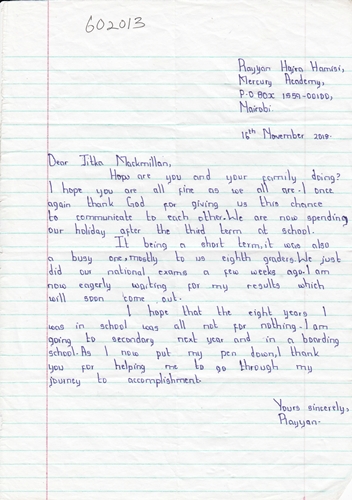 602013
Rayyan Hajra Hamisi,
Mercury Academy,
P.O BOX 1859-00100,
Nairobi.
16th November 2018.
Dear Jitka Mackmillan,
How are you and your family doing?
I hope you are all fine as we all are. I once
again thank God for giving us this chance
to communicate to each other. We are now spending
our holiday after the third term at school.
It being a short term, it was also
a busy one, mostly to us eighth graders. We just
did our national exams a few weeks ago. I am
now eagerly waiting for my results which
will soon come out.
I hope that the eight years I
was in school was all not for nothing. I am
going to secondary next year and in a boarding
school. As I now put my pen down, I thank
you for helping me to go through my
journey to accomplishment.
Yours sincerely,
Rayyan.